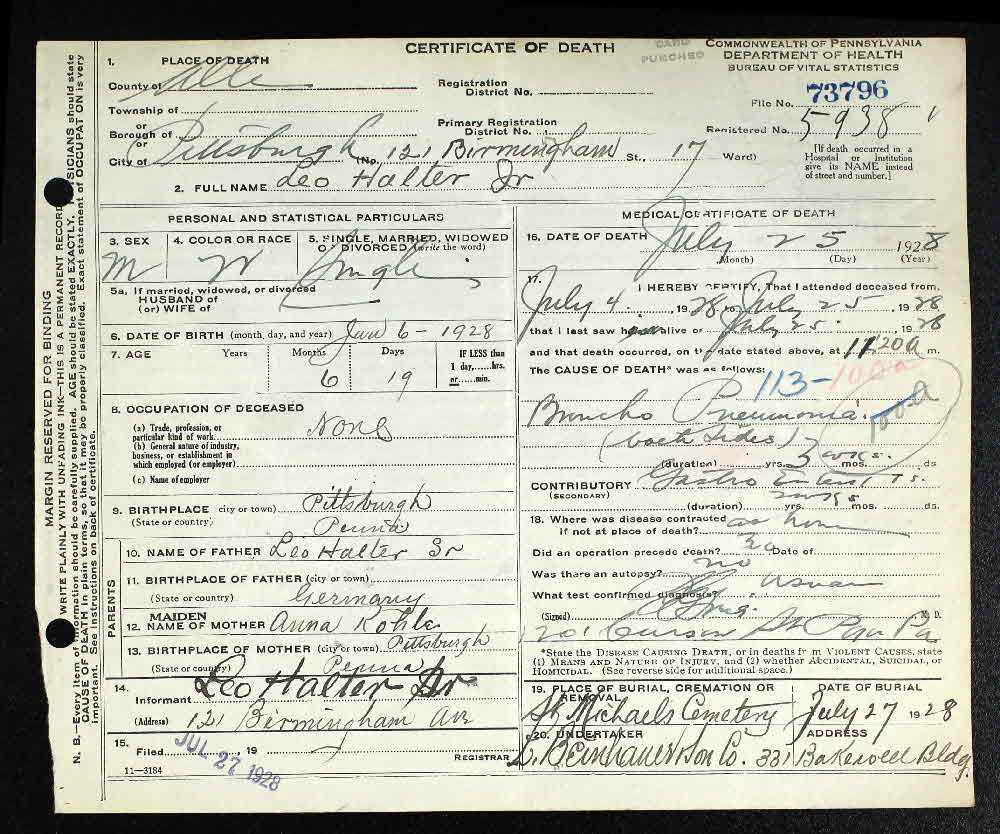 CERTIFICATE OF DEATH
CARD PUNCHED
COMMONWEALTH OF PENNSYLVANIA
DEPARTMENT OF HEALTH
BUREAU OF VITAL STATISTICS
1. PLACE OF DEATH
County of Alle
Registration District No.
File No. 73796
Township of
or
Borough of
or
City of Pittsburgh
Primary Registration District No.
Registered No. 5938
(No. 121 Birmingham St., 17 Ward)
[If death occurred in a Hospital or Institution give its NAME instead of street and number.]
2. FULL NAME Leo Halter Jr
PERSONAL AND STATISTICAL PARTICULARS
3. SEX M
4. COLOR OR RACE W
5. SINGLE, MARRIED, WIDOWED OR DIVORCED (write the word) Single
5a. If married, widowed, or divorced
HUSBAND of
(or) WIFE of
6. DATE OF BIRTH (month, day, and year) Jan 6 - 1928
7. AGE Years Months Days IF LESS than 1 day,....hrs. or....min.
6 19
8. OCCUPATION OF DECEASED
(a) Trade, profession, or particular kind of work None
(b) General nature of industry, business, or establishment in which employed (or employer)
(c) Name of employer
9. BIRTHPLACE (city or town) Pittsburgh
(State or country) Penna
PARENTS
10. NAME OF FATHER Leo Halter Sr
11. BIRTHPLACE OF FATHER (city or town)
(State or country) Germany
12. MAIDEN NAME OF MOTHER Anna Kohle
13. BIRTHPLACE OF MOTHER (city or town) Pittsburgh
(State or country) Penna
14. Informant Leo Halter Sr
(Address) 121 Birmingham Ave
15. Filed JUL 27 1928 19
REGISTRAR
11-3184
MEDICAL CERTIFICATE OF DEATH
16. DATE OF DEATH July 25 1928
(Month) (Day) (Year)
17. I HEREBY CERTIFY, That I attended deceased from
July 4, 1928 to July 25, 1928
that I last saw him alive on July 25, 1928
and that death occurred, on the date stated above, at 11:20 a m.
The CAUSE OF DEATH* was as follows:
113-100a
Broncho Pneumonia 100a
(both sides)
(duration) yrs. 3 wks. mos. ds
CONTRIBUTORY (SECONDARY) Gastro
(duration) yrs. wks mos. ds.
18. Where was disease contracted if not at place of death?
Did an operation precede death? Date of
Was there an autopsy? no
What test confirmed diagnosis?
(Signed) M. D.
201 Carson St
*State the DISEASE CAUSING DEATH, or in deaths from VIOLENT CAUSES, state (1) MEANS AND NATURE OF INJURY, and (2) whether ACCIDENTAL, SUICIDAL, or HOMICIDAL. (See reverse side for additional space.)
19. PLACE OF BURIAL, CREMATION OR REMOVAL
DATE OF BURIAL
St Michaels Cemetery July 27 1928
20. UNDERTAKER
ADDRESS
L. Beinhauer & Son Co. 331 Bakewell Bldg.
MARGIN RESERVED FOR BINDING
WRITE PLAINLY WITH UNFADING INK—THIS IS A PERMANENT RECORD
N. B.—Every item of information should be carefully supplied. AGE should be stated EXACTLY. PHYSICIANS should state
CAUSE OF DEATH in plain terms, so that it may be properly classified. Exact statement of OCCUPATION is very
important. See instructions on back of certificate.